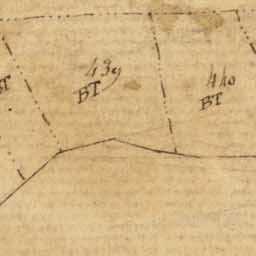 439
BT
440
BT